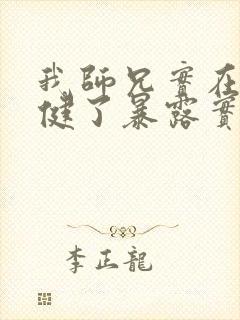 我師兄實在
健了暴露實
李正龍